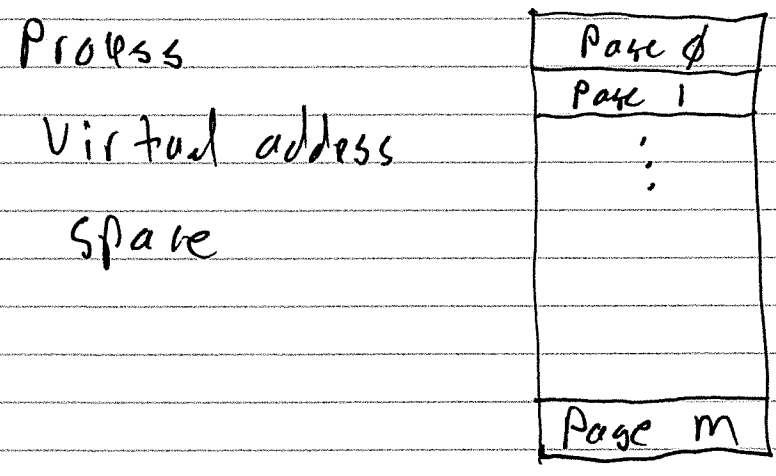 Process
Virtual addess
space
Page 0
Page 1
⋮
Page m